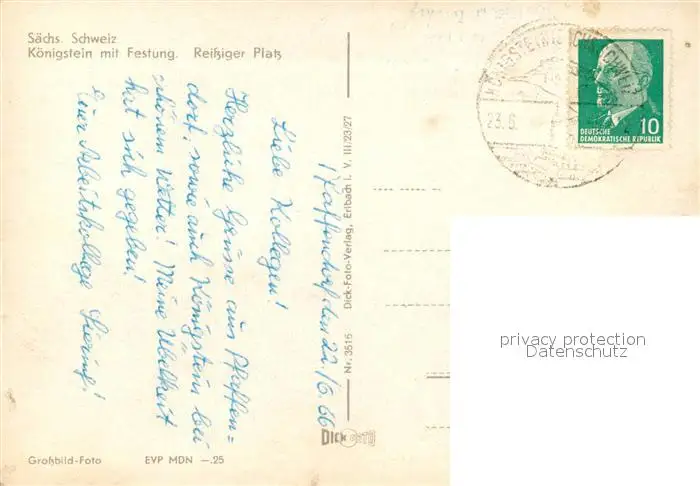 Sächs. Schweiz
Königstein mit Festung. Reißiger Platz
Pfaffendorf, den 22./6.66
Liebe Kollegen!
Herzliche Grüsse aus Pfaffen=
dorf, sowie auch Königstein bei
schönem Wetter! Meine Übelkeit
hat sich gegeben!
Euer Arbeitskollege
Großbild-Foto EVP MDN —.25
Nr. 3516 Dick-Foto-Verlag, Erlbach i. V. III/23/27
DICK FOTO
23.6.
DEUTSCHE
DEMOKRATISCHE REPUBLIK
10
privacy protection
Datenschutz